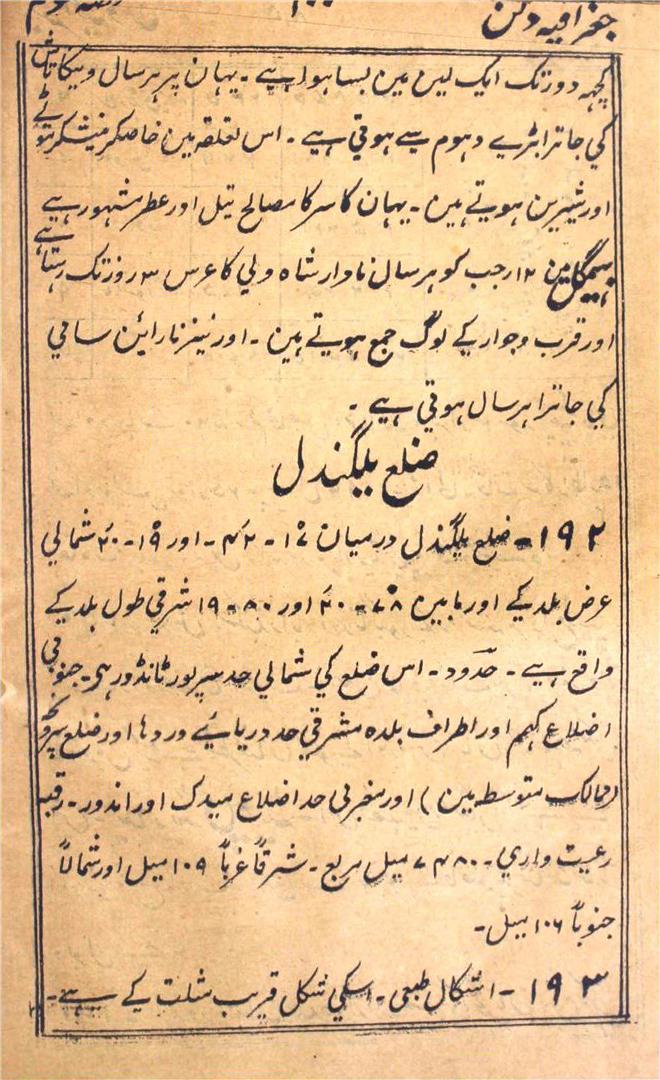 جغرافیہ دکن
کچہہ دور تک ایک لین مین بسا ہوا ہے ۔ یہان پر ہر سال وینکاتاش
کي جاترا بڑے دہوم سے ہوتي ہے ۔ اس تعلقہ مین خاصکر نیشکر موٹے
اور شیرین ہوتے ہین ۔ یہان کا سر کا مصالح تیل اور عطر مشہور ہے
بہیمگل مین ۱۲ رجب کو ہر سال ناوار شاہ ولي کا عرس ۳ روز تک رہتا ہے
اور قرب و جوار کے لوگ جمع ہوتے ہین ۔ اور نیز نارائن سامي
کي جاترا ہر سال ہوتي ہے ۔
ضلع یلگندل
۱۹۲ ۔ ضلع یلگندل درمیان ۱۶ ۔ اور ۱۹ ۔ شمالي
عرض بلد کے اور مابین ۷۸ ۔ ۴۰ اور ۸۰ ۔ ۱۹ شرقي طول بلد کے
واقع ہے ۔ حدود ۔ اس ضلع کي شمالي حد سرپور ٹانڈور ہی ۔ جنوبي
اضلاع کہمم اور اطراف بلدہ مشرقي حد دریائے وردہا اور ضلع
(ممالک متوسط مین) اور مغربي حد اضلاع میدک اور اندور ۔ رقبہ
رعیت واري ۔ ۷۴۸۰ میل مربع ۔ شرقاً غرباً ۱۰۹ میل اور شمالاً
جنوباً ۱۰۶ میل ۔
۱۹۳ ۔ اشکال طبعي ۔ اسکي شکل قریب مثلت کے ہے ۔